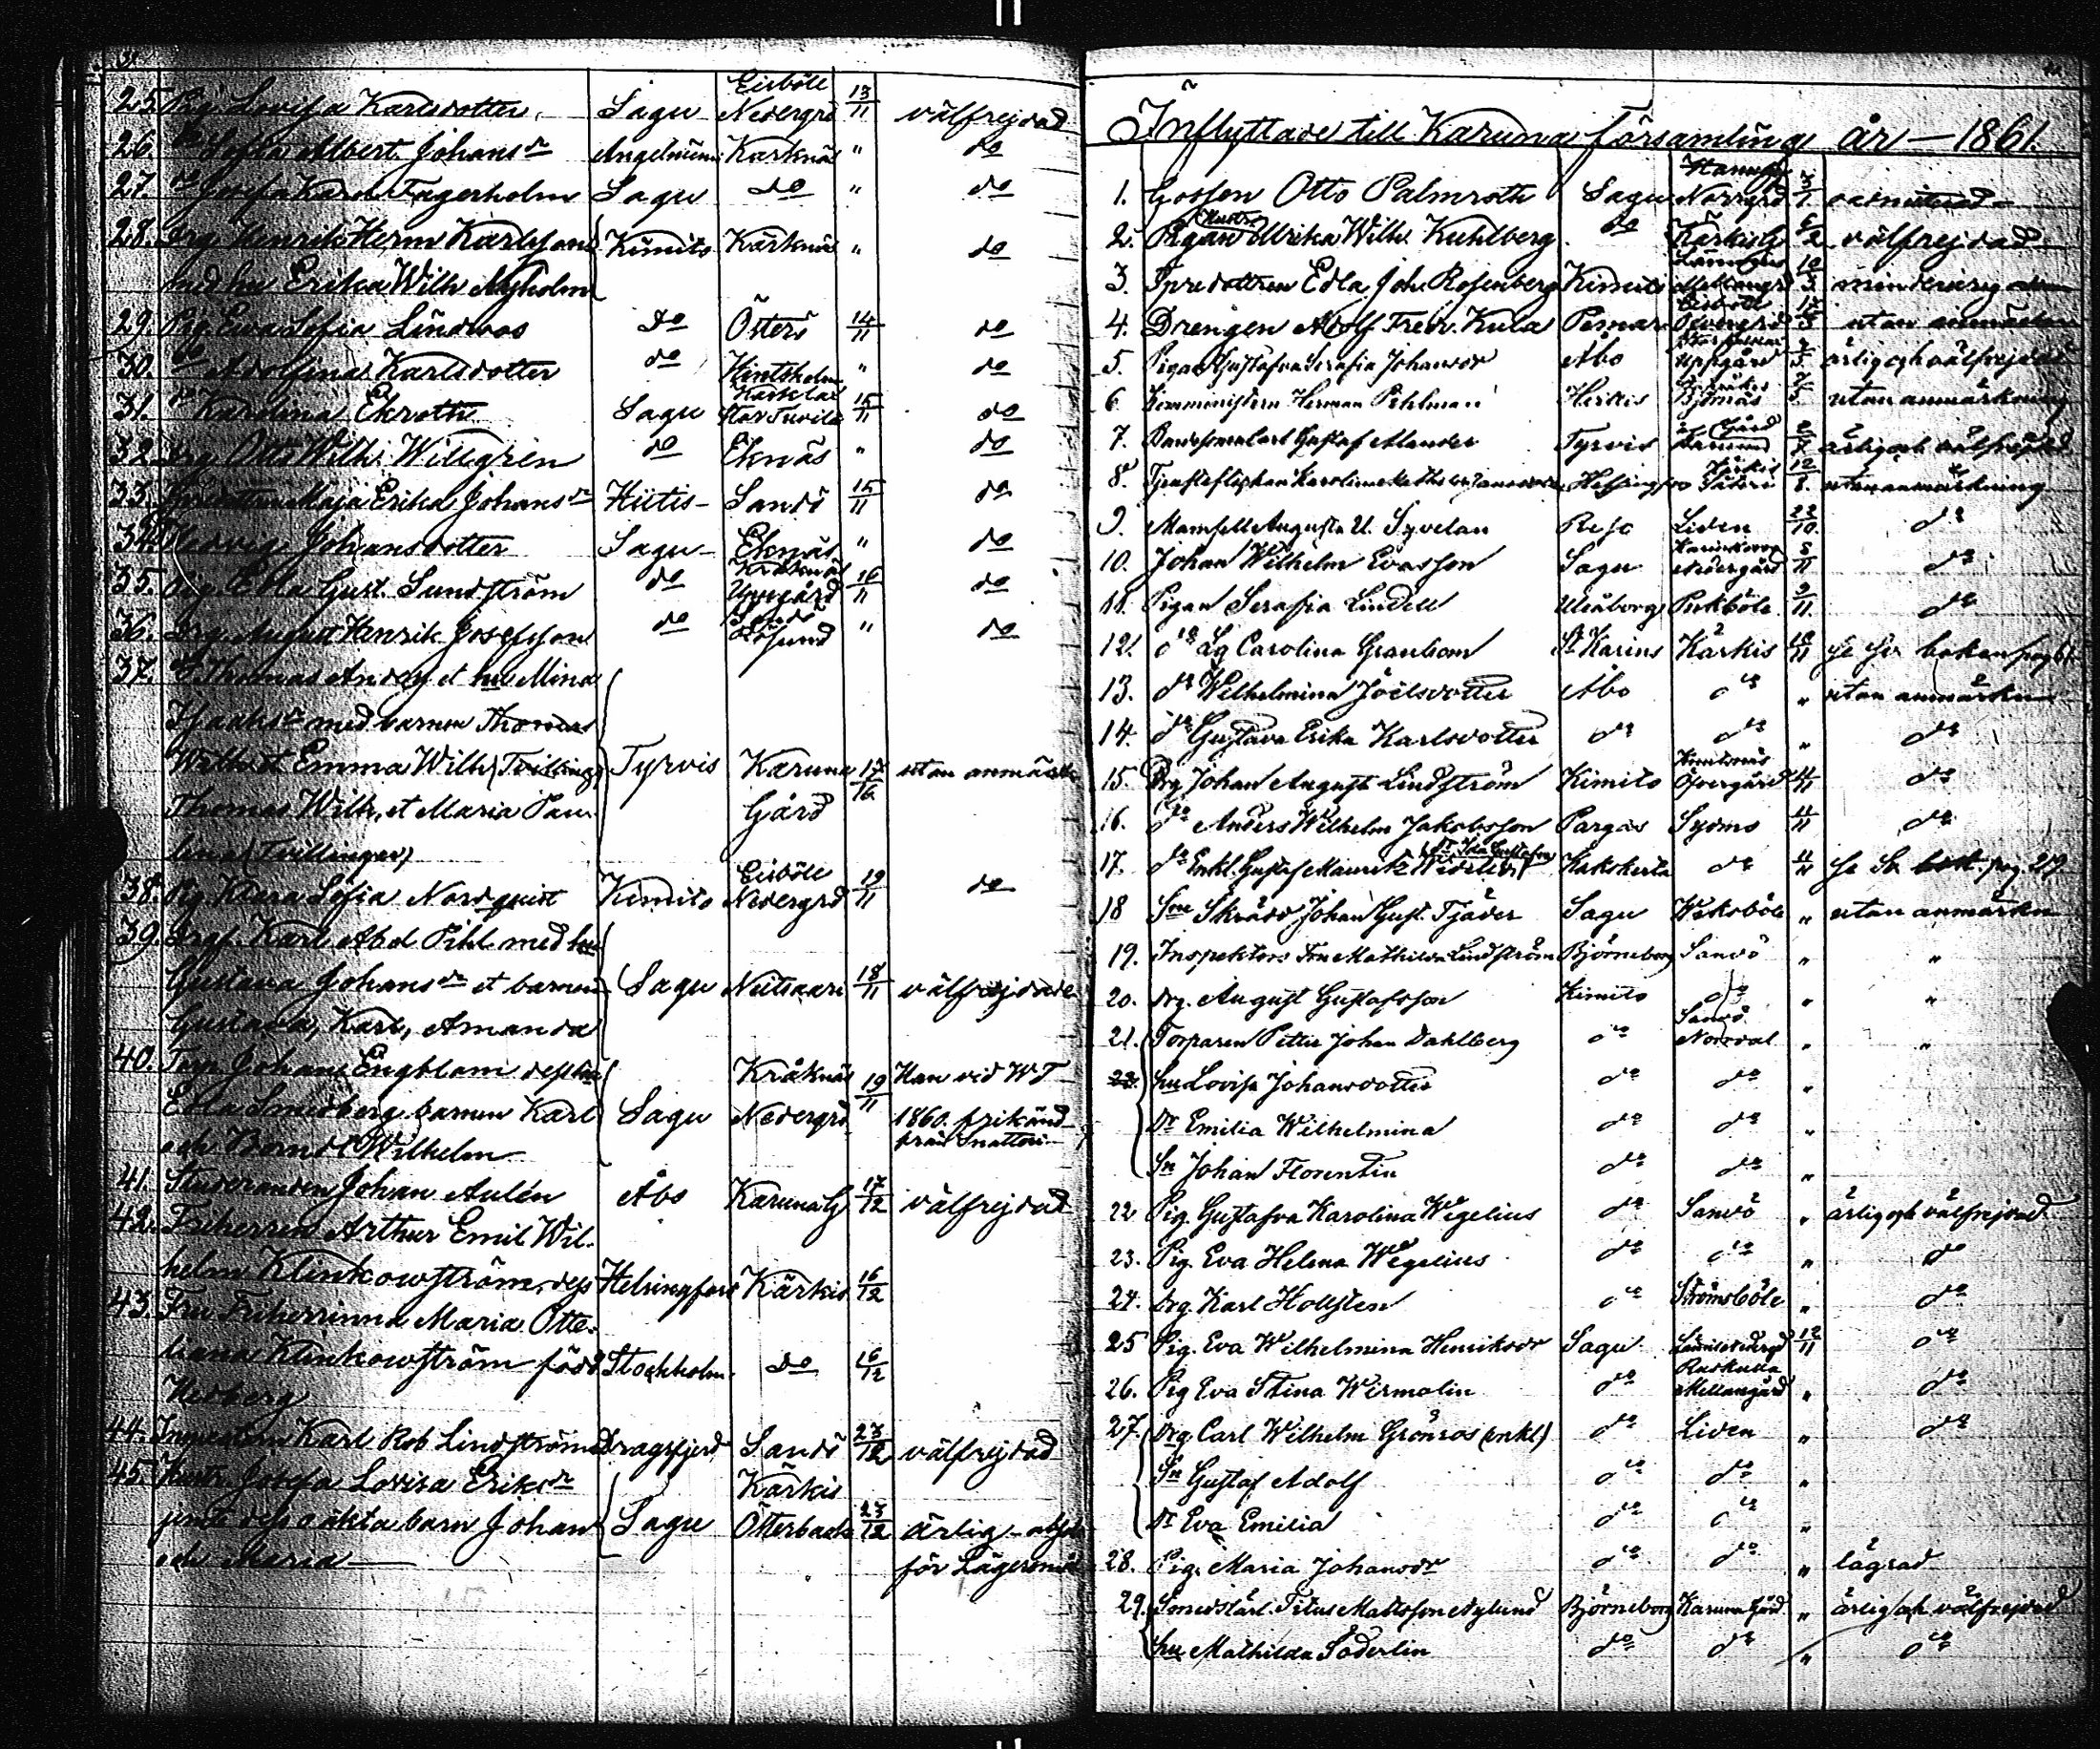 25. Pig. Lovisa Karlsdotter. Sagu Eisböle Nedergrd 13/11 välfrejdad
26. do Sofia Albert. Johansdr Angelniemi Karknäs " do
27. do Josefa Karol. Fagerholm Sagu do " do
28. Drg. Henrik Herm Karlsson Kimito Kärknäs " do
med hu Erika Wilh Nyholm
29. Pig. Eva Sofia Lindroos do Österö 14/11 do
30. do Adolfina Karlsdotter do Hintsholm " do
31. do Karolina Ekroth Sagu Karklax Stor Tuvila 15/11 do
32. Drg Otto Wilh. Willgrén do Eknäs " do
33. Maja Erika Johansdr Hiitis Sandö 15/11 do
34. Hedvig Johansdotter Sagu Eknäs " do
35. Pig. Edla Gust. Sundström do Kråknäs Uppgård 16/11 do
36. Drg. August Henrik Josefsson do Sandö " do
37. Thomas Anders. et hu Mina
Isaaksdr med barnen Thomas
Wilh. et Emma Wilh (Tvillingar) Tyrvis Karuna 17/16 utan anmärkn
Thomas Wilh. et Maria Pau- Gård
lina (Tvillingar)
38. Pig Klara Sofia Nordquist Kimito Eisböle Nedergrd 19/11 do
39. Karl Abel Pihl med hu
Gustava Johansdr et barnen Sagu Neitsaari 18/11 välfrejdade
Gustava, Karl, Amanda
40. Torp Johan Engblom dess hu Kråknäs 19/11 Han vid WT
Edla Smedberg barnen Karl Sagu Nedergrd 1860. frikänd
och Wilhelm från snatteri
41. Studeranden Johan Aulén Åbo Karuna G 17/12 välfrejdad
42. Friherren Arthur Emil Wil-
helm Klinkowström, dess Helsingfors Kärkis 16/12
43. Fru Friherrinna Maria Otte-
liana Klinkowström född Stockholm do 16/12
Hedberg
44. Inspektorn Karl Rob Lindström Dragsfjerd Sandö 23/12 välfrejdad
45. Josefa Lovisa Eriksdr Kärkis
jemte dess oäkta barn Johan Sagu Otterbacka 23/12 ärlig
och Maria för Lägersmål
Inflyttade till Karuna församling år — 1861.
1. Gossen Otto Palmroth Sagu Norrgrd 3/1 oadmitterad
2. Pigan Ulrika Wilh. Kuhlberg do Kärkis G 6/2 välfrejdad
3. Edla Joh. Rosenberg Kimito Mellangrd 10/3 minderårig
4. Drengen Adolf Fredr. Kula Pemar Eisböle Öfvergrd utan anmärkn
5. Pigan Gustafva Serafia Johansdr Åbo Uppgård ärlig och välfrejdad
6. Komministern Herman Pihlman Hirkis Björnäs utan anmärkning
7. Carl Gustaf Alander Tyrvis Karuna Gård ärlig och välfrejdad
8. Karolina Helsingfors Kärkis Säteri 12/8. utan anmärkning
9. Mamsell Augusta U. Syvelan Reso Liden 22/10. do
10. Johan Wilhelm Evasson Sagu Nedergård 8/11 do
11. Pigan Serafia Lindell Uleåborg Pukböle 9/11. do
12. do Carolina Granbom St Karins Kärkis 10/11
13. do Wilhelmina Joelsdotter Åbo do " utan anmärkn
14. do Gustava Erika Karlsdotter do do " do
15. Drg Johan August Lindström Kimito Öfvergård 11/11 do
16. do Anders Wilhelm Jakobsson Pargas Sydmo 11/11 do
17. do Enkl. Gustaf Mauritz Kakskerta do 11/11 Se pag. 219
18 Skrädd Johan Gust. Tjäder Sagu Wiksböle " utan anmärkn
19. Inspektors Fru Mathilda Lindström Björneborg Sandö " "
20. Drg. August Gustafsson Kimito do " "
21. Torparen Petter Johan Dahlberg do Sandö Norrdal " "
22. hu Lovisa Johansdotter do do "
Dr Emilia Wilhelmina do do "
Sn Johan Florentin do do "
22 Pig. Gustafva Karolina Wigelius do Sandö " ärlig och välfrejdad
23. Pig. Eva Helena Wigelius do do " do
24. Drg. Karl Hollsten do Strömsböle " do
25 Pig. Eva Wilhelmina Henriksdr Sagu 12/11 do
26. Pig Eva Stina Wirmolin do Mellangård " do
27. Drg. Carl Wilhelm Grönroos (enkl) do Liden " do
Sn Gustaf Adolf do do "
Dr Eva Emilia do do "
28. Pig. Maria Johansdr do do " lägrad
29. Smedslärl. Titus Mattsson Nylund Björneborg Karuna Gård " ärlig och välfrejdad
hu Mathilda Söderlin do do " do